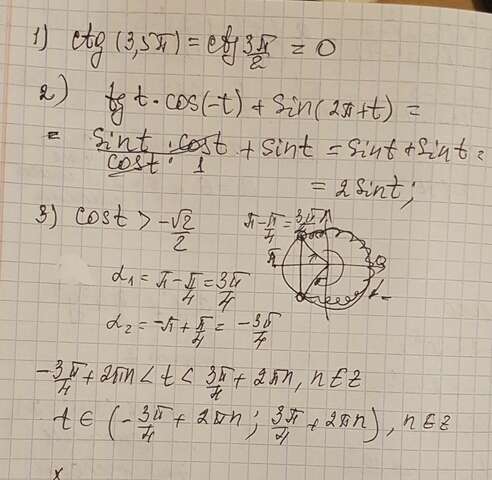 1) ctg (3,5π) = ctg 3π/2 = 0
2) tg t · cos(-t) + sin(2π+t) =
= sint · cost / cost · 1 + sint = sint + sint =
= 2 sint;
3) cost > -√2/2
π - π/4 = 3π/4
π
0
α1 = π - π/4 = 3π/4
α2 = -π + π/4 = -3π/4
-3π/4 + 2πn < t < 3π/4 + 2πn, n ∈ Z
t ∈ (-3π/4 + 2πn; 3π/4 + 2πn), n ∈ Z
x